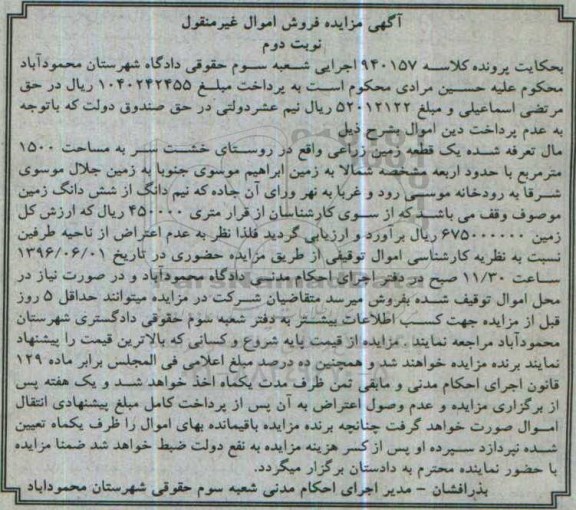 آگهی مزایده فروش اموال غیرمنقول
نوبت دوم
بحکایت پرونده کلاسه ۹۴۰۱۵۷ اجرایی شعبه سوم حقوقی دادگاه شهرستان محمودآباد
محکوم علیه حسین مرادی محکوم است به پرداخت مبلغ ۱۰۴۰۲۴۲۴۵۵ ریال در حق
مرتضی اسماعیلی و مبلغ ۵۲۰۱۲۱۲۲ ریال نیم عشردولتی در حق صندوق دولت که باتوجه
به عدم پرداخت دین اموال بشرح ذیل
مال تعرفه شده یک قطعه زمین زراعی واقع در روستای خشت سر به مساحت ۱۵۰۰
مترمربع با حدود اربعه مشخصه شمالا به زمین ابراهیم موسوی جنوبا به زمین جلال موسوی
شرقا به رودخانه موسی رود و غربا به نهر ورای آن جاده که نیم دانگ از شش دانگ زمین
موصوف وقف می باشد که از سوی کارشناسان از قرار متری ۴۵۰۰۰۰ ریال که ارزش کل
زمین ۶۷۵۰۰۰۰۰۰ ریال برآورد و ارزیابی گردید فلذا نظر به عدم اعتراض از ناحیه طرفین
نسبت به نظریه کارشناسی اموال توقیفی از طریق مزایده حضوری در تاریخ ۱۳۹۶/۰۶/۰۱
ساعت ۱۱/۳۰ صبح در دفتر اجرای احکام مدنی دادگاه محمودآباد و در صورت نیاز در
محل اموال توقیف شده بفروش میرسد متقاضیان شرکت در مزایده میتوانند حداقل ۵ روز
قبل از مزایده جهت کسب اطلاعات بیشتر به دفتر شعبه سوم حقوقی دادگستری شهرستان
محمودآباد مراجعه نمایند . مزایده از قیمت پایه شروع و کسانی که بالاترین قیمت را پیشنهاد
نمایند برنده مزایده خواهند شد و همچنین ده درصد مبلغ اعلامی فی المجلس برابر ماده ۱۲۹
قانون اجرای احکام مدنی و مابقی ثمن ظرف مدت یکماه اخذ خواهد شد و یک هفته پس
از برگزاری مزایده و عدم وصول اعتراض به آن پس از پرداخت کامل مبلغ پیشنهادی انتقال
اموال صورت خواهد گرفت چنانچه برنده مزایده باقیمانده بهای اموال را ظرف یکماه تعیین
شده نپردازد سپرده او پس از کسر هزینه مزایده به نفع دولت ضبط خواهد شد ضمنا مزایده
با حضور نماینده محترم به دادستان برگزار میگردد.
بذرافشان – مدیر اجرای احکام مدنی شعبه سوم حقوقی شهرستان محموداباد